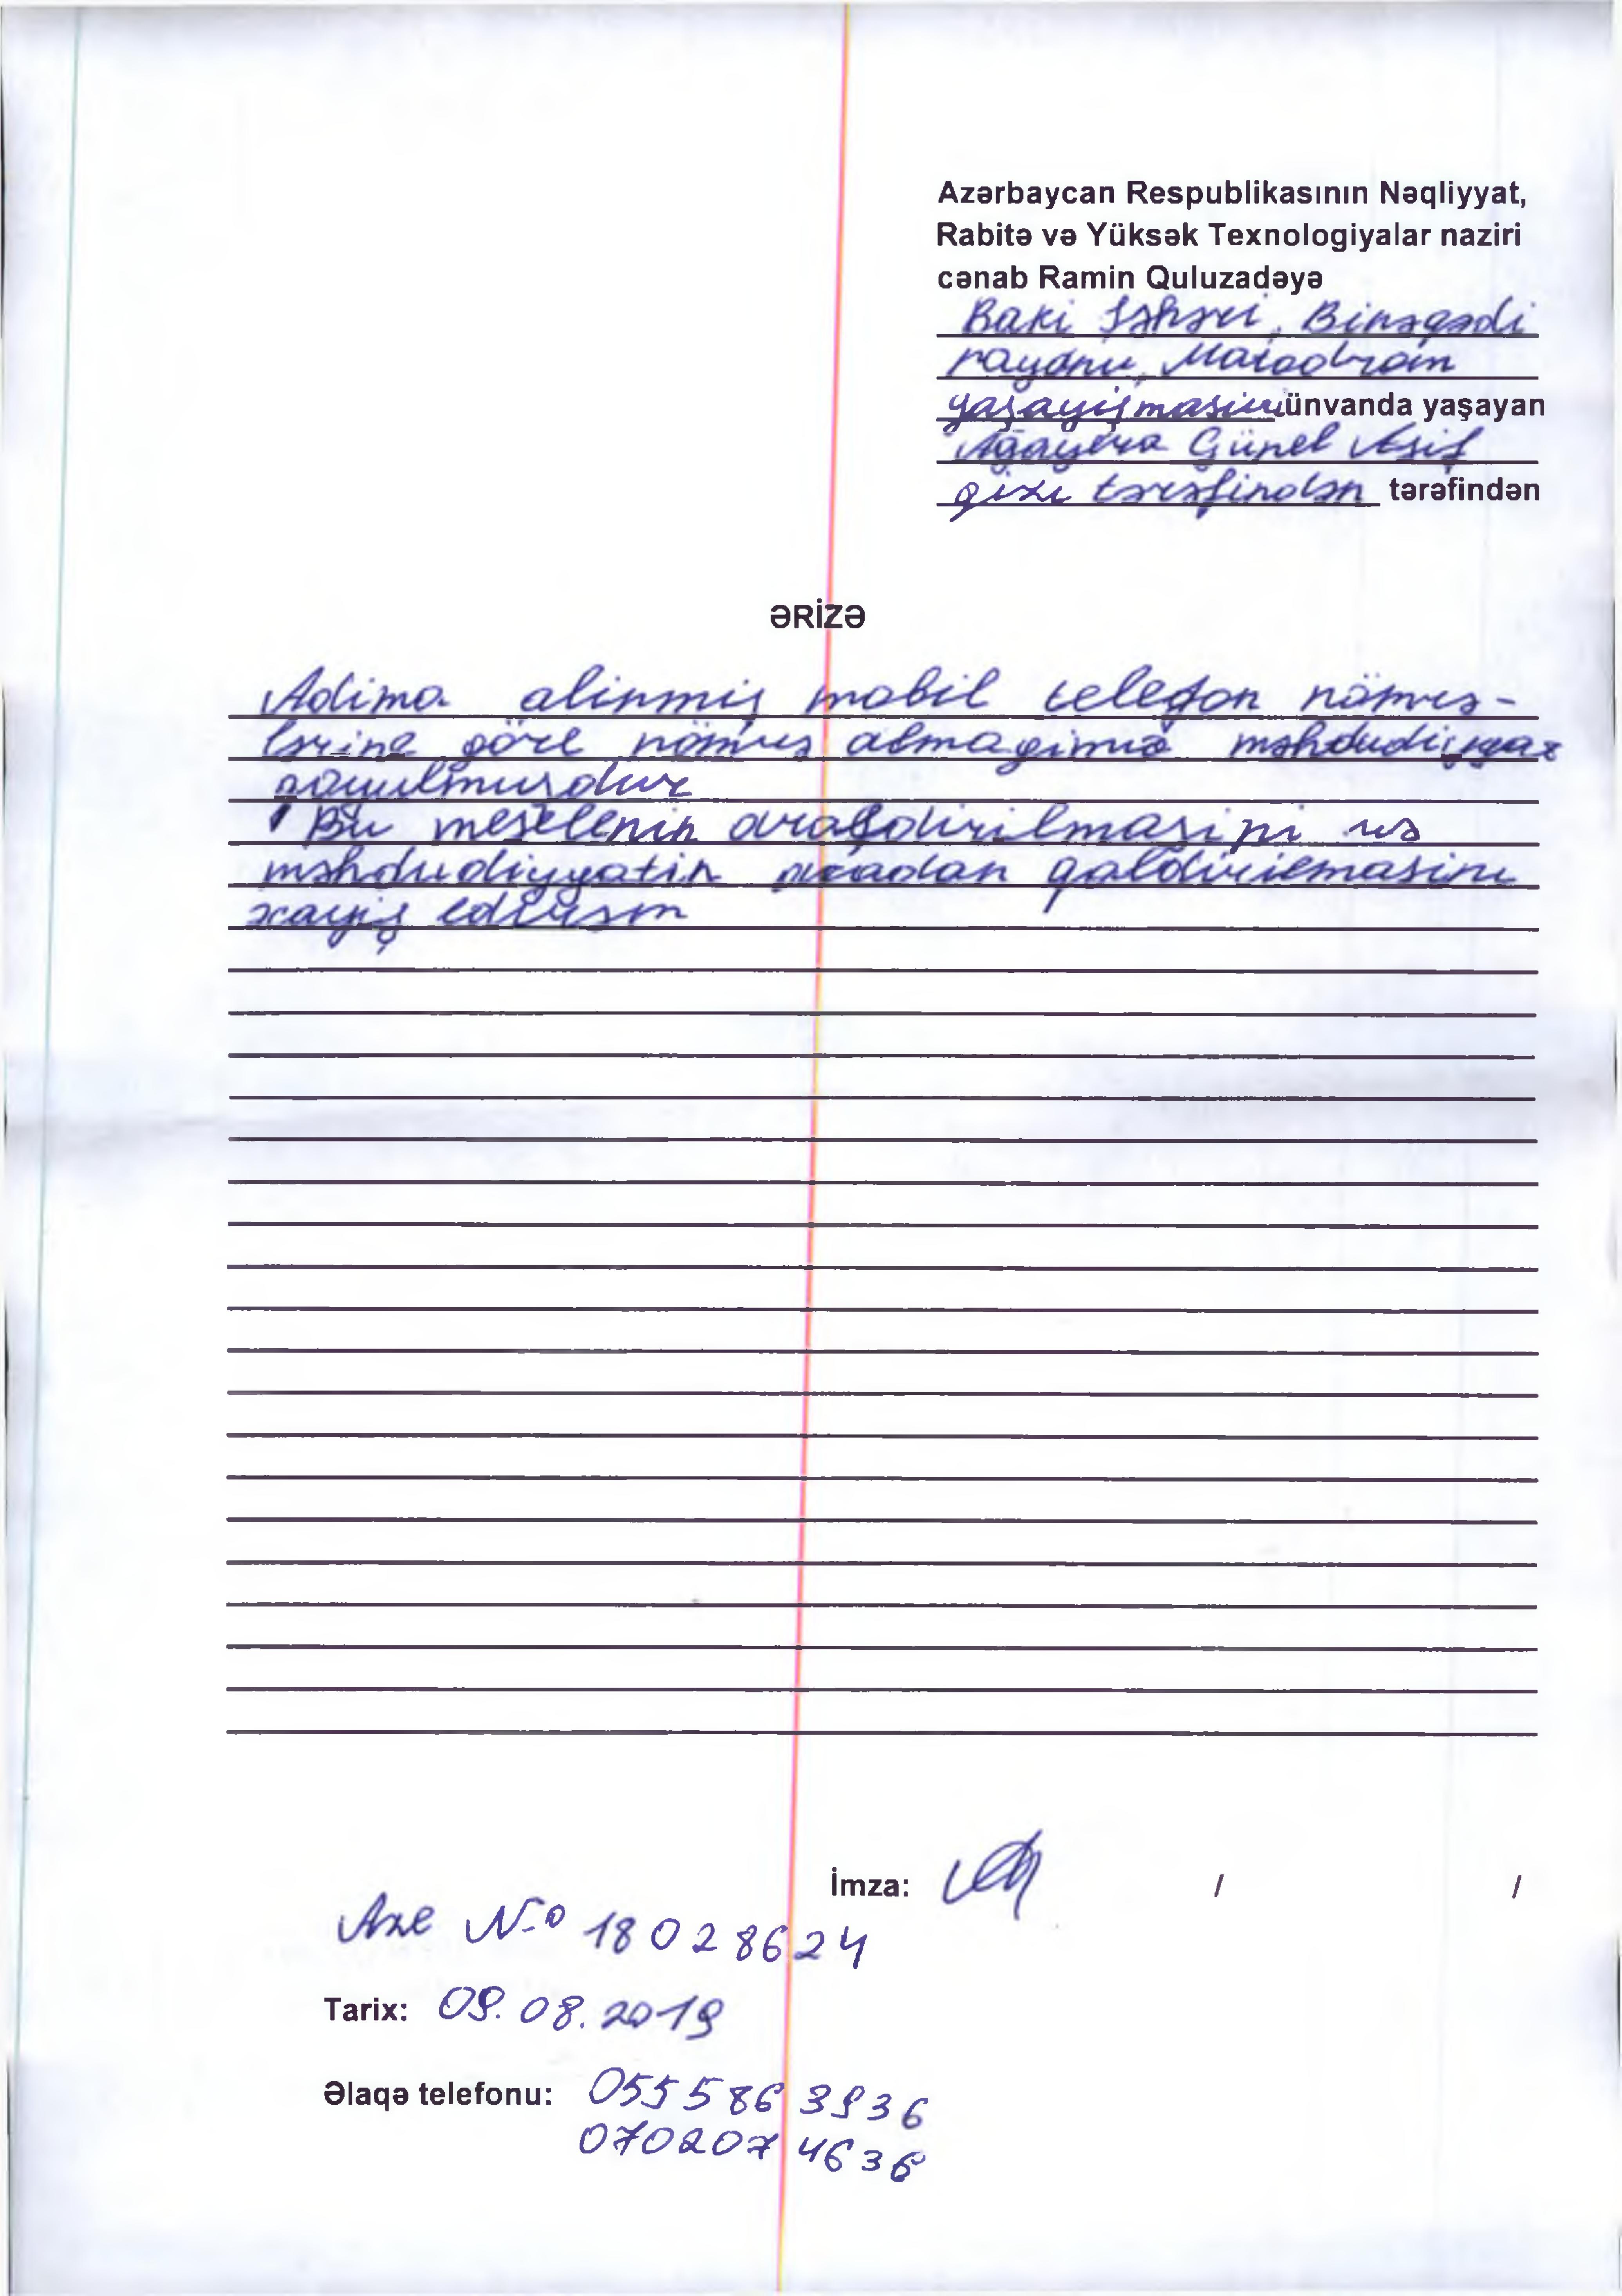 Azərbaycan Respublikasının Nəqliyyat,
Rabitə və Yüksək Texnologiyalar naziri
cənab Ramin Quluzadəyə
Baki şəhəri, Binəqədi
rayonu, Matodrom
yaşayişmasivi ünvanda yaşayan
Ağayeva Günel Asif
qızı tərəfindən tərəfindən
ƏRİZƏ
Adima alinmiş mobil telefon nömrə-
lərine göre nömrə almagima məhdudiyyət
qoyulmuşdur
Bu meselenin araşdirilmasini və
məhdudiyyatin aradan qaldirilmasini
xayiş edirəm
İmza:
/ /
Aze № 18028624
Tarix: 09.08.2019
Əlaqə telefonu: 055 586 3936
070207 4636